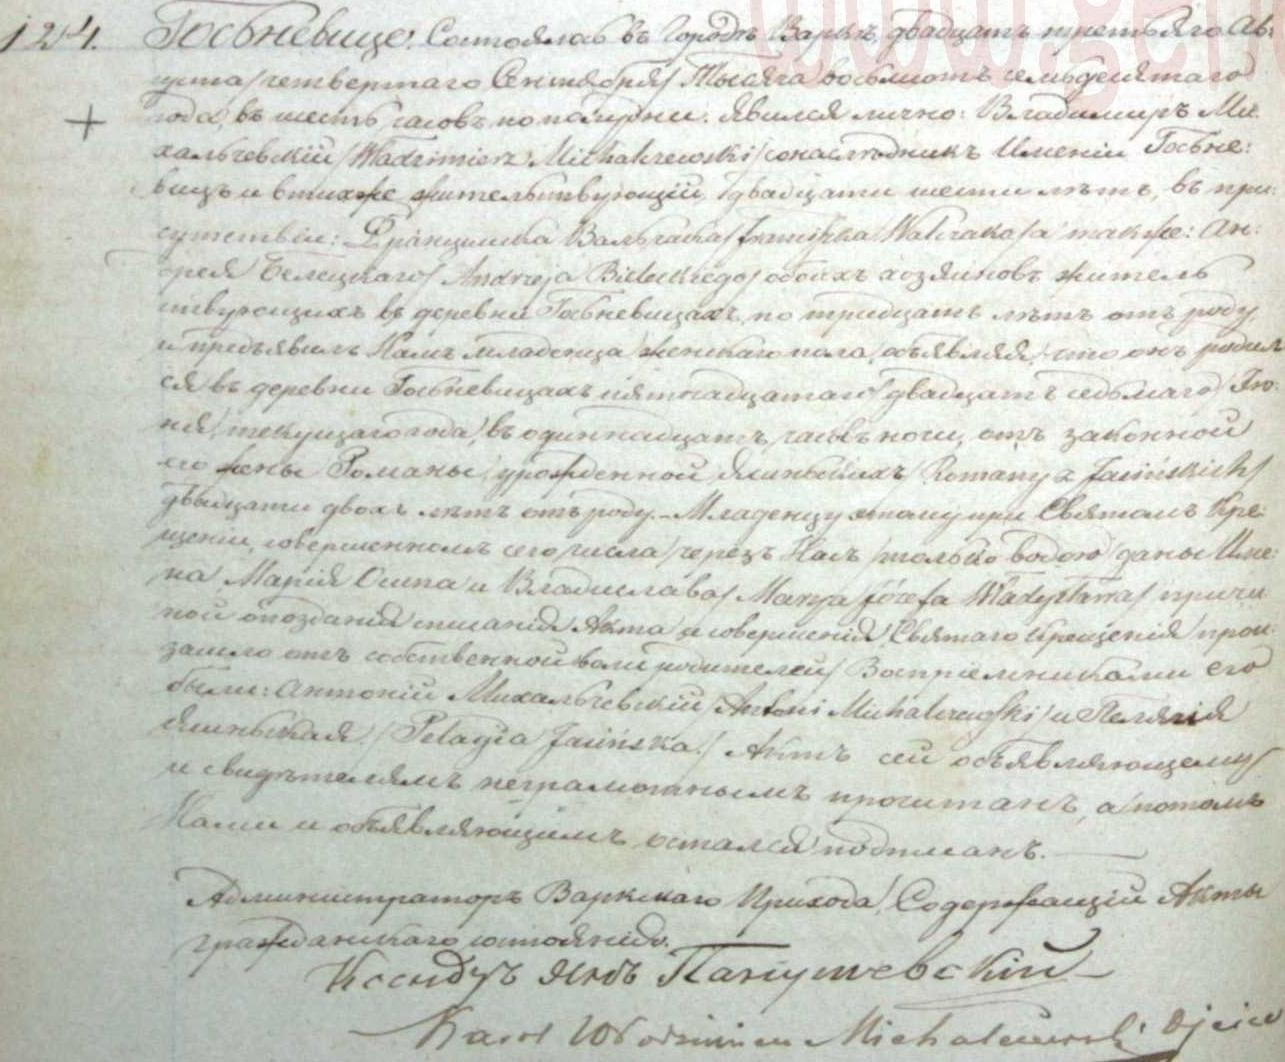 124. Госьневице. Состоялось въ Городѣ Варкѣ, двадцать третьяго Ав:
густа/четвертаго Сентября/ Тысяча восемьсотъ семьдесятаго
года, въ шесть часовъ по полудни. Явился лично: Владимиръ Ми:
хальчевскій /Włodzimierz Michalczewski/ сонаслѣдникъ Имѣнія Госьне:
вицъ и втихже жительствующій, двадцати шести лѣтъ, въ при:
сутствіи: Францишка Вальчака/Franciszka Walczaka/ а также: Ан:
дрея Белецкаго/ Andrzeja Bieleckiego/ обоихъ хозяиновъ житель
ствующихъ въ деревни Госьневицахъ, по тридцать лѣтъ отъ роду
и предъявилъ Намъ младенца женскаго пола, объявляя, что онъ родил
ся въ деревни Госьневицахъ пятнадцатаго/двадцать седьмаго/ Ію:
ня, текущаго года, въ одиннадцать часовъ ночи, отъ законной
его жены Романы, урожденной Ясиньскихъ /Romany z Jasińskich/
двадцати двохъ лѣтъ отъ роду. – Младенцу этому при Святомъ Кре:
щеніи, совершенномъ сего числа /черезъ Насъ/ только водою/ даны Име
на, Марія Осипа и Владислава/ Marya Józefa Władysława/ причи
ной опозданія писанія Акта и совершенія Святаго Крещенія прои
зашло отъ собственной воли родителей/ Воспріемниками его
были: Антоній Михальчевскій /Antoni Michalczewski/ и Пелягія
Ясиньская /Pelagia Jasińska/ Актъ сей объявляющему
и свидѣтелямъ неграмотнымъ прочитанъ, а потомъ
Нами и объявляющимъ остался подписанъ.
Администраторъ Варкскаго Прихода, Содержащій Акты
гражданскаго состоянія.
Ксендзъ
Karol Włodzimierz Michalczewski Ojciec